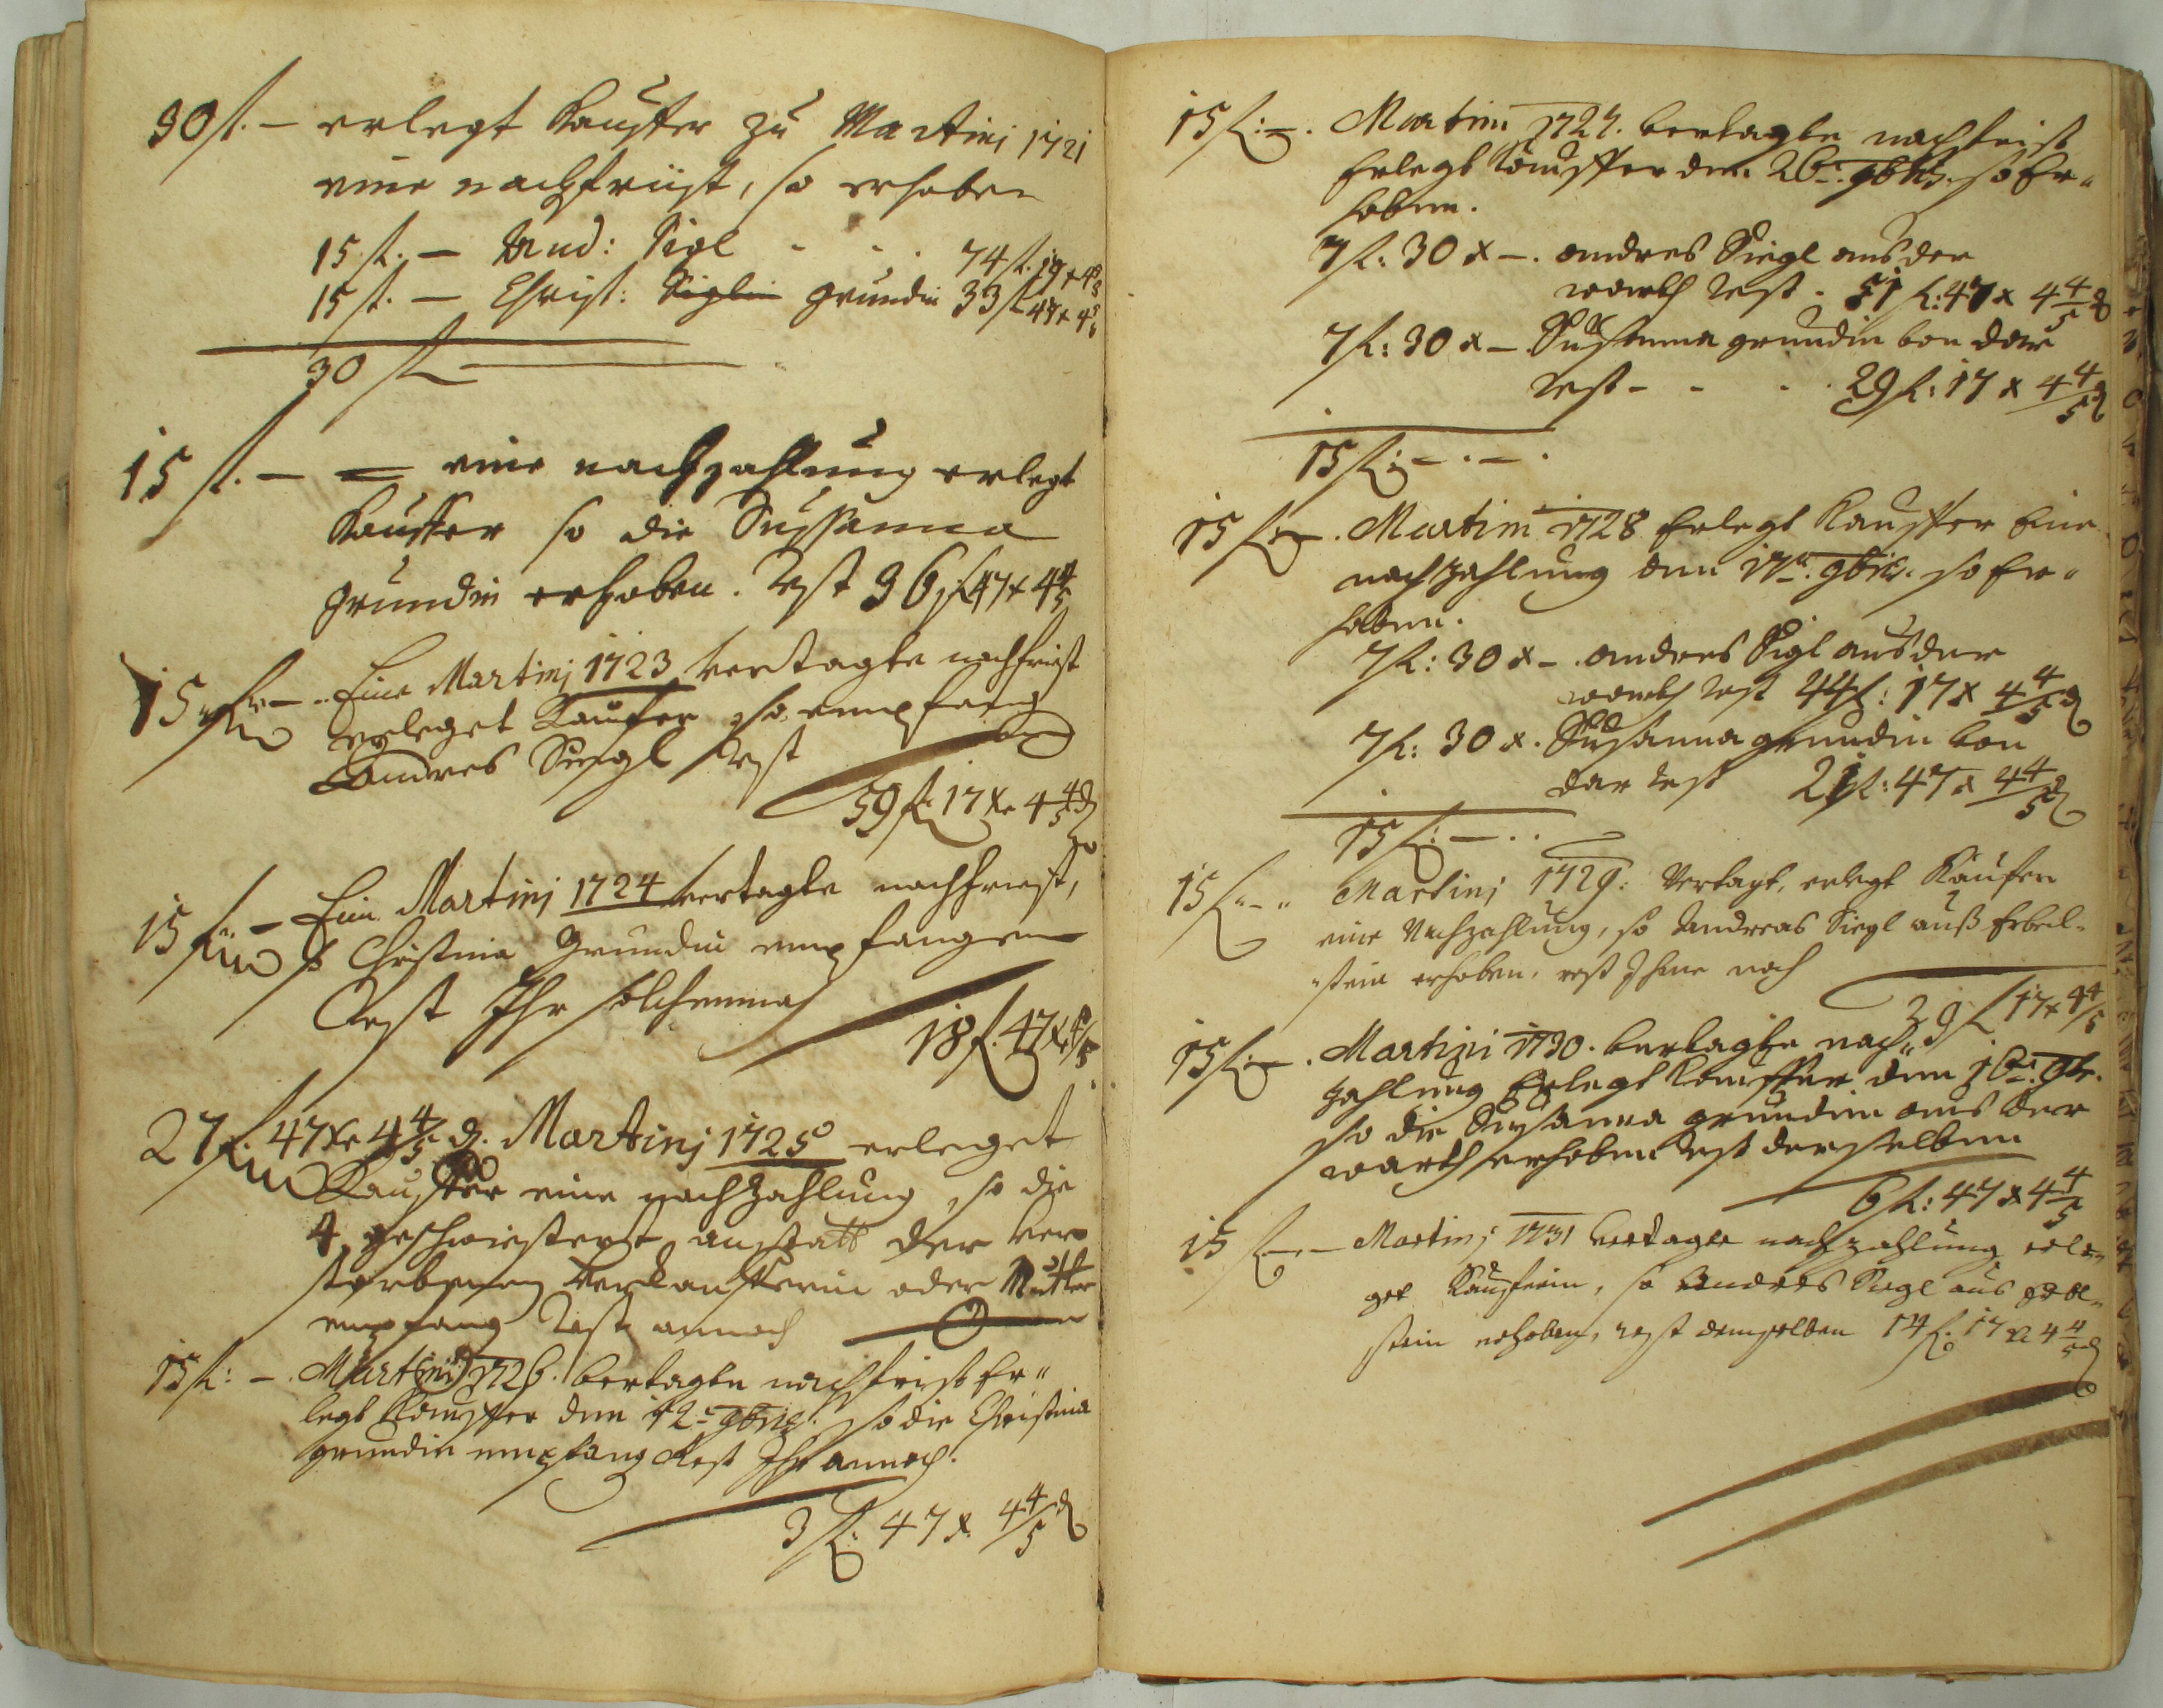 30 fl. — erlegt Kauffer zu Martinj 1721
eine nachfrist, so erhoben
15 fl. — And: Sigl - - . 74 fl. 17 x 4 4/5
15 fl. — Christ: Siglin grundin 33 fl 47 x 4 4/5
30 fl —
15 fl. — eine nachzahlung erlegt
Kauffer so die Sussanna
grundin erhoben. Rest 36 fl 47 x 4 4/5
15 fl — Eine Martinj 1723 vertagte nachfrist
erleget Kaufer so empfang
Andres Siegl Rest
59 fl. 17 x 4 4/5 d
15 fl. — Eine Martinj 1724 vertagte nachfrist,
so Christina Grundin empfangen
Rest Ihr solchemnach
18 f. 47 x 4 4/5
27 f. 47 x 4 4/5 d. Martinj 1725 erleget
Kauffer eine nachzahlung, so die
4 geschwistert anstatt der ver
storbenen Verkaufferin oder Mutter
empfang Rest annoch 0
15 fl: — . Martini 1726. vertagte nachfrist Er"
legt Kauffer den 12t. 9bris. so die Christina
grundin empfang Rest Ihr annoch.
3 fl: 47 x 4 4/5 d
15 fl: — . Martini 1727. vertagte nachfrist
Erlegt Kauffer den 26t. 9bris. so Er"
hoben.
7 fl: 30 x — . andres Siegl aus der
warth Rest . 51 fl: 47 x 4 4/5 d
7 fl: 30 x — . Susanna grundin von dar
Rest - - - . 29 fl: 17 x 4 4/5 d
15 fl: — . — .
15 fl: — . Martini 1728 Erlegt Kauffer Eine
nachzahlung den 17t. 9bris. so Er"
hoben.
7 fl: 30 x — . andres Sigl aus der
warth Rest 44 fl: 17 x 4 4/5 d
7 fl: 30 x . Susanna grundin von
dar Rest 21 fl: 47 x 4 4/5 d
15 fl: — . .
15 fl — " Martinj 1729: Vertagt, erlegt Kaufer
eine Nachzahlung, so Andreas Siegl auß
stein erhoben, rest Ihme noch
29 fl 17 x 4 4/5
15 fl: — . Martini 1730. vertagte nach"
zahlung Erlegt Kauffer den 16t. 9br.
so die Susanna grundin aus der
warth erhoben Rest derselben
6 fl: 47 x 4 4/5
15 fl. — Martinj 1731 vertagte nachzahlung erle"
get Kaufferin, so Andres Siegl aus
stein erhoben, rest demselben 14 f. 17 x 4 4/5 d